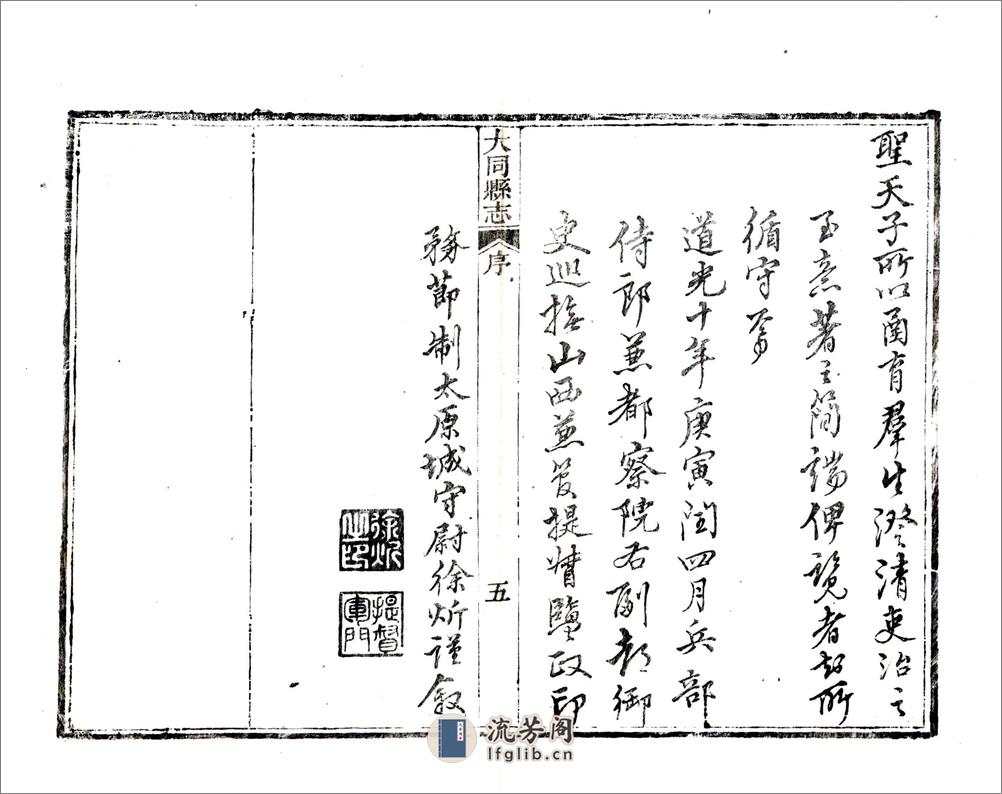 聖天子所以甬育羣生澄清吏治之
至意著之簡端俾覽者知所
循守焉
道光十年庚寅閏四月兵部
侍郎兼都察院右副都御
史巡撫山西兼管提督鹽政印
大同縣志 序 五
務節制太原城守尉徐炘謹敘
徐炘之印
提督軍門
流芳阁
lfglib.cn